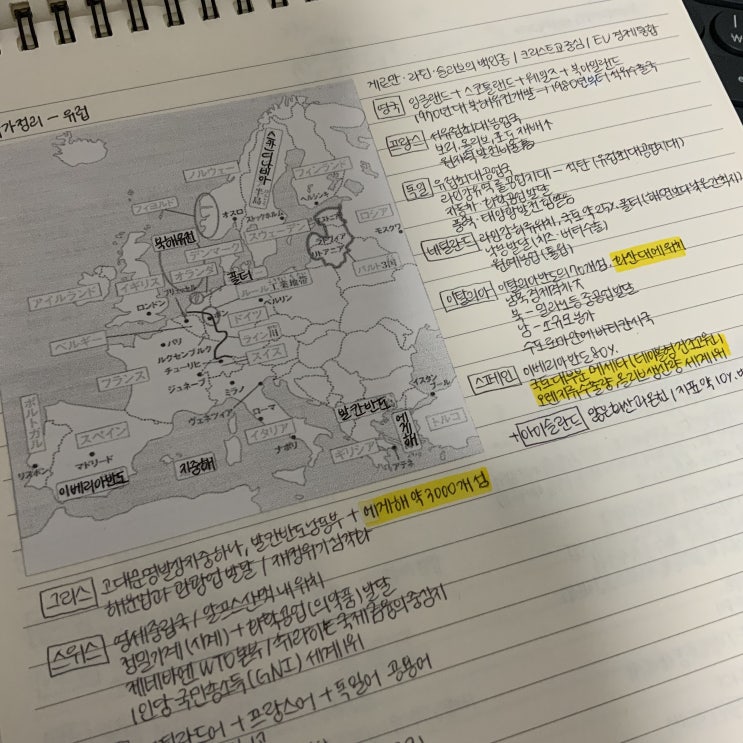 가정리 - 유럽
게르만·라틴·슬라브의 백인종 / 크리스트교 중심 / EU 경제통합
영국 잉글랜드 + 스코틀랜드 + 웨일즈 + 북아일랜드
1970년대 북해유전개발 → 1980년부터 석유수출국
프랑스 서유럽최대농업국
보리, 올리브, 포도 재배↑
원자력발전비중↑
독일 유럽최대공업국
라인강유역 룰공업지대 - 석탄 (유럽최대공업지대)
자동차·화학공업발달
풍력·태양광발전
네덜란드 라인강하류위치, 국토 약 25% 폴더 (해면보다 낮은 간척지)
낙농발달 (치즈·버터수출)
원예농업 (튤립)
이탈리아 이탈리아반도의 개섬, 화산대에 위치
남북경제격차大
북 - 밀라노등 중공업발달
남 - 소규모농가
수도로마안에 바티칸시국
스페인 이베리아반도 80%
국토대부분 메세타
오렌지수출량, 올리브생산량 세계1위
+아이슬란드
スカンディナビア半島
ノルウェー
フィンランド
フィヨルド
ヘルシンキ
オスロ
ストックホルム
エストニア
ロシア
スウェーデン
ラトビア
モスクワ
북해유전
リトアニア
デンマーク
バルト3国
イギリス
オランダ
폴더
アイルランド
ルール工業地帯
ロンドン
ブリュッセル
ベルリン
ベルギー
ドイツ
パリ
ライン川
ルクセンブルク
チューリヒ
スイス
フランス
ジュネーブ
ミラノ
ポルトガル
ヴェネツィア
발칸반도
イスタンブール
スペイン
ローマ
에게해
トルコ
マドリード
イタリア
リスボン
지중해
ナポリ
ギリシア
이베리아반도
アテネ
그리스 고대문명발상지중하나, 발칸반도남동부 + 에게해 약 3000개섬
해운업과 관광업 발달 / 재정위기심각화
스위스 영세중립국 / 알프스산맥 내 위치
정밀기계 (시계) + 화학공업 (의약품) 발달
제네바엔 WTO본부 / 취리히는 국제금융의 중심지
1인당 국민총소득 (GNI) 세계1위
+ 프랑스어 + 독일어 공용어